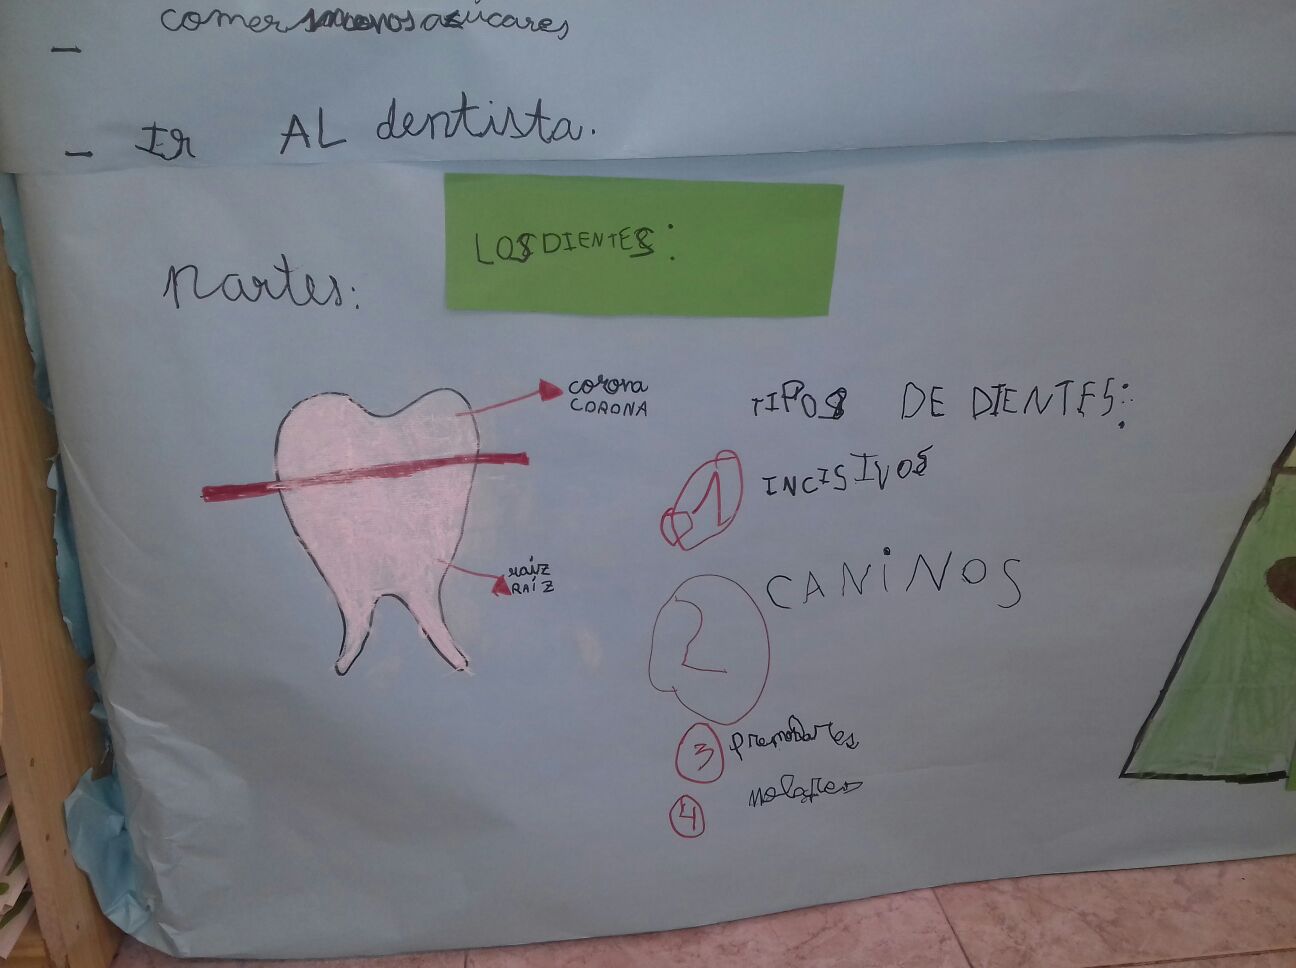 - comer menos azúcares
- Ir AL dentista.
LOS DIENTES:
Partes:
corona
CORONA
raíz
RAÍZ
TIPOS DE DIENTES:
1 INCISIVOS
2 CANINOS
3 premolares
4 molares